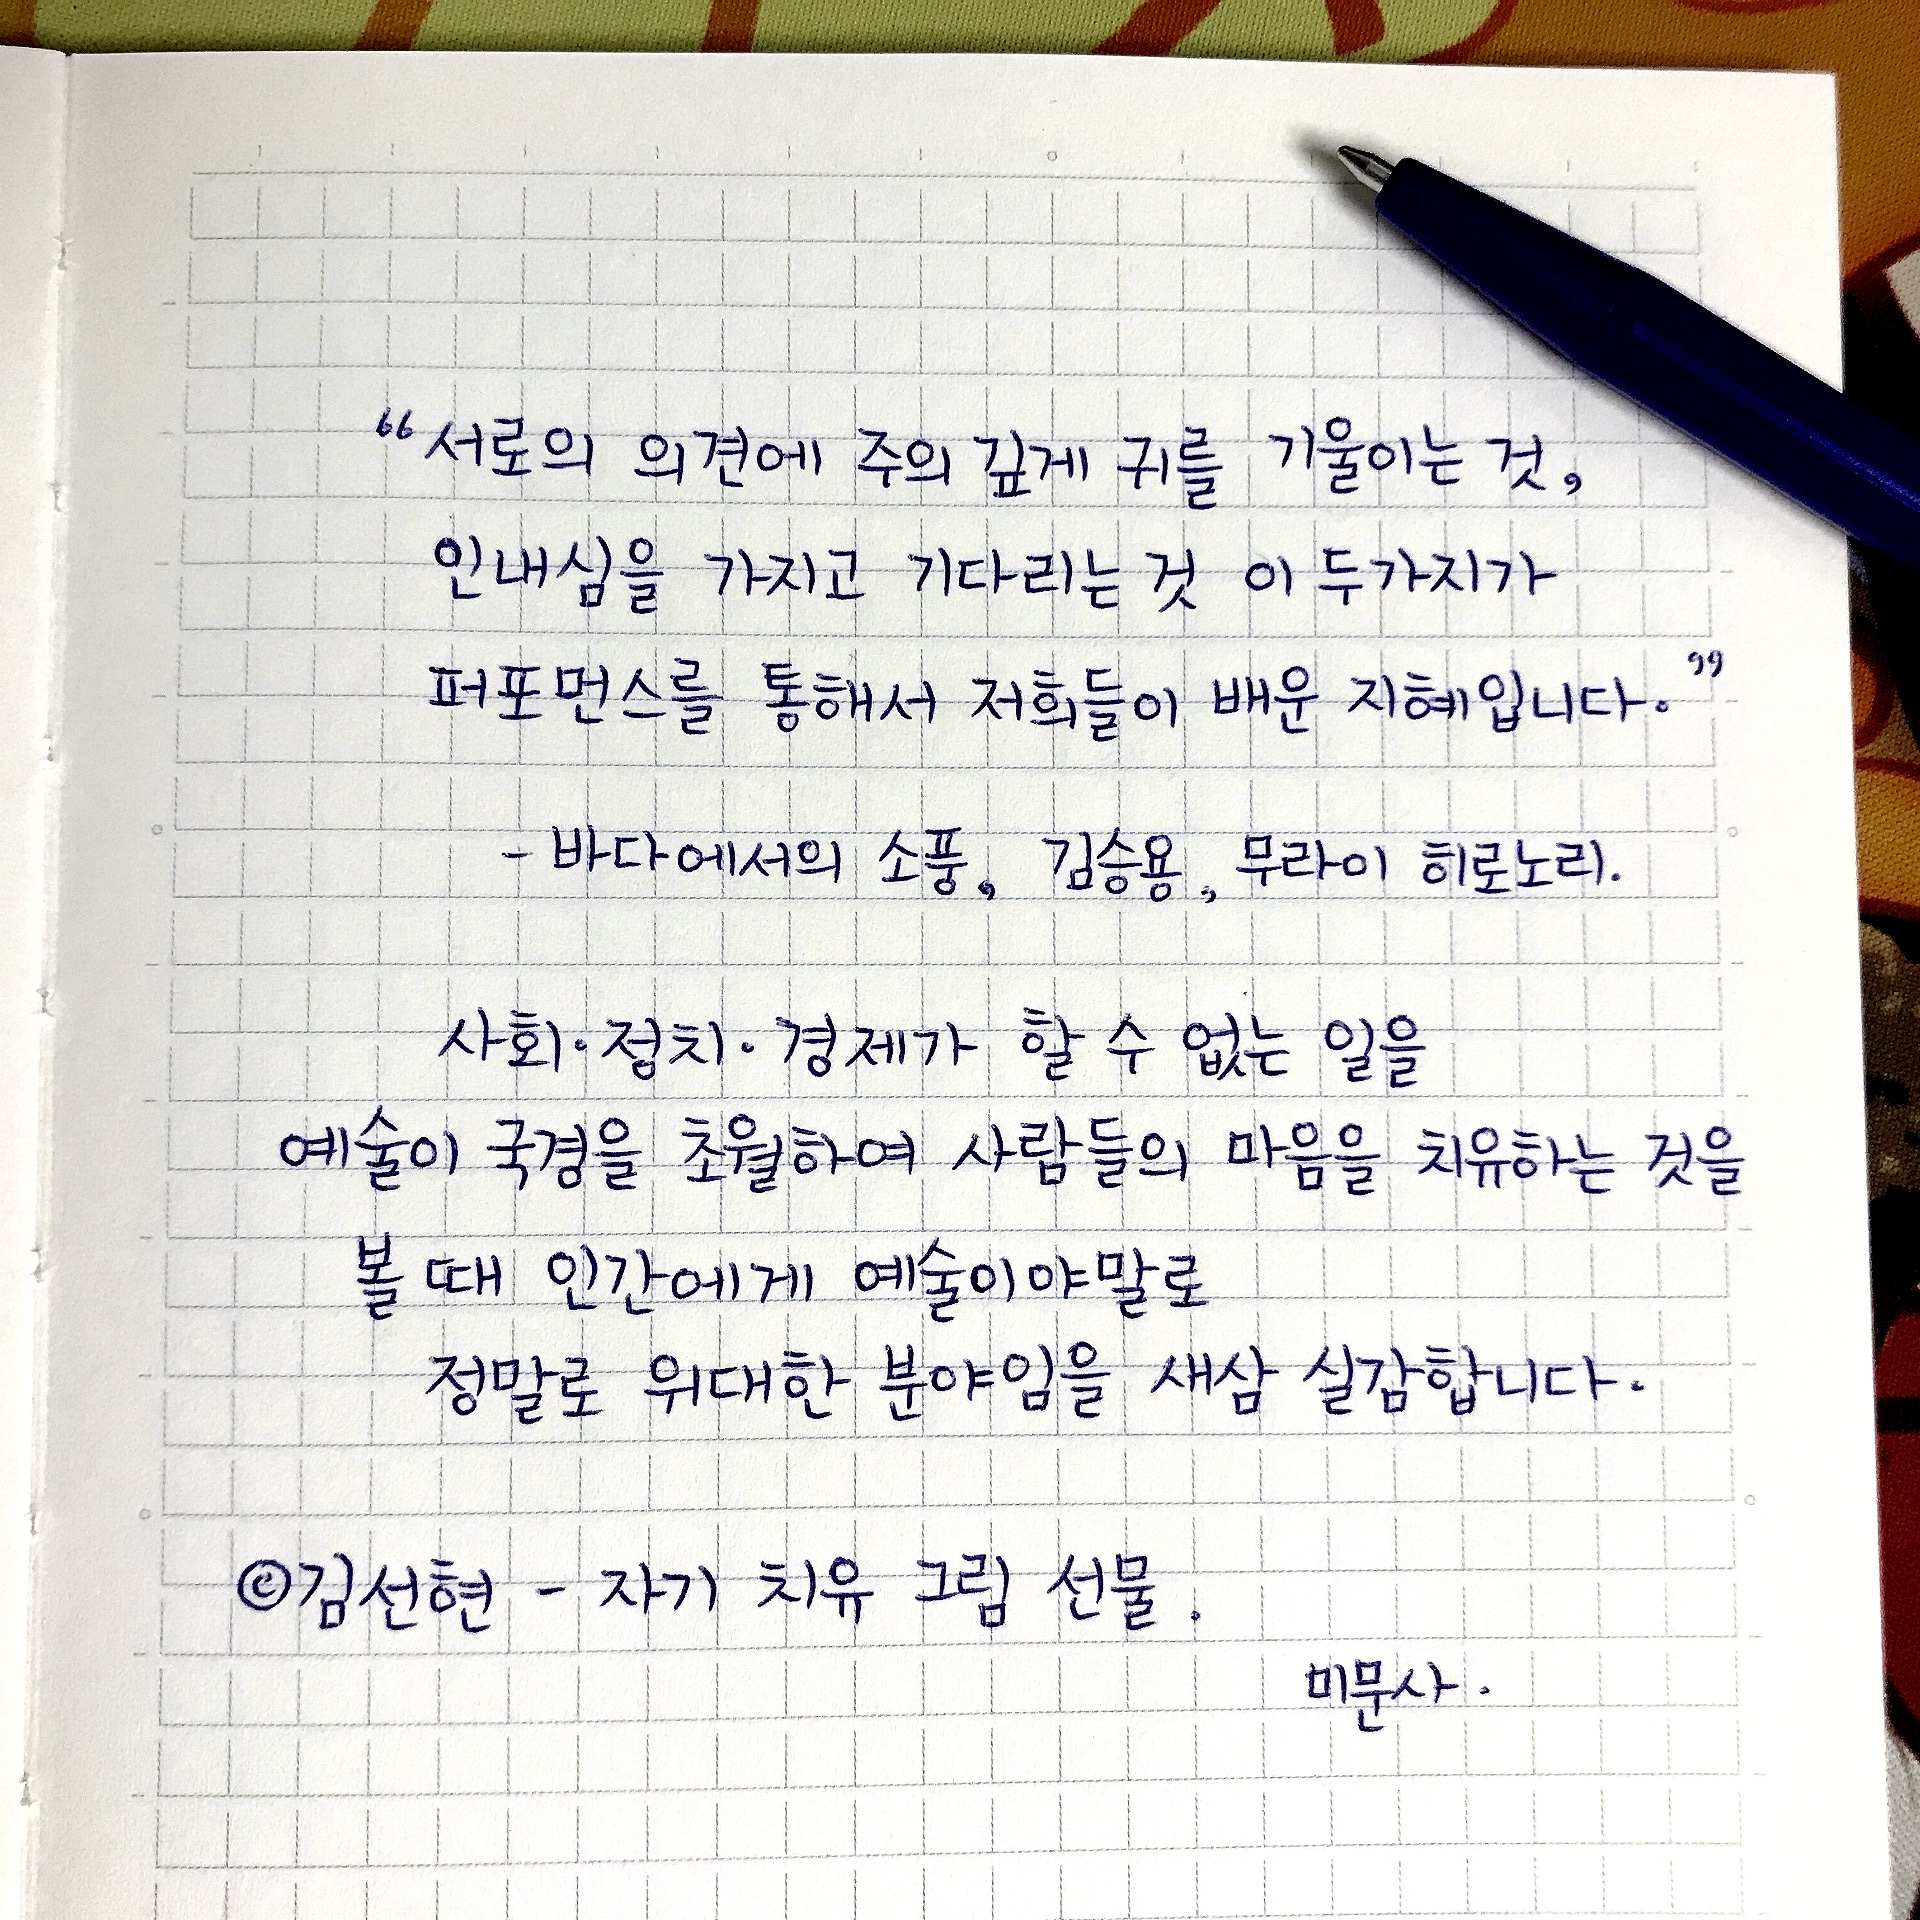 “서로의 의견에 주의 깊게 귀를 기울이는 것,
인내심을 가지고 기다리는 것 이 두가지가
퍼포먼스를 통해서 저희들이 배운 지혜입니다.”
- 바다에서의 소풍, 김승용, 무라이 히로노리.
사회·정치·경제가 할 수 없는 일을
예술이 국경을 초월하여 사람들의 마음을 치유하는 것을
볼 때 인간에게 예술이야말로
정말로 위대한 분야임을 새삼 실감합니다.
©김선현 - 자기 치유 그림 선물.
미문사.